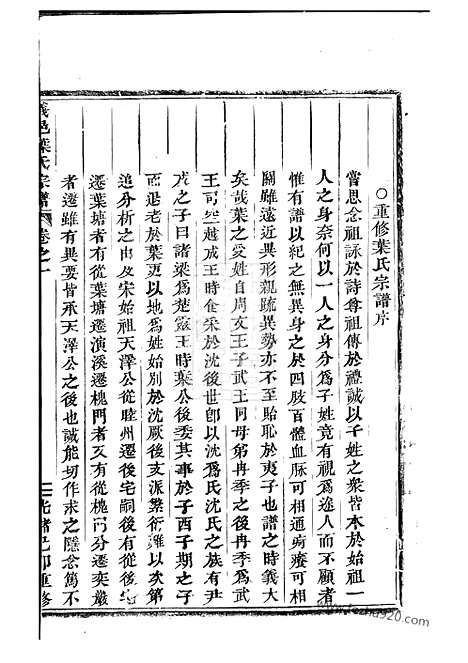 ○重修葉氏宗譜序
嘗思念祖詠於詩尊祖傳於禮誠以子姓之衆皆本於始祖一
人之身奈何以一人之身分爲子姓竟有視爲途人而不顧者
惟有譜以紀之無異身之於四肢百體血脉可相通痾癢可相
關雖遠近異形親疏異勢亦不至貽恥於夷子也譜之時義大
矣哉葉之受姓自周文王子武王同母弟冉季之後冉季爲武
王司空越成王時食采於沈後世卽以沈爲氏沈氏之族有尹
戌之子曰諸梁爲楚靈王時葉公後委其事於子西子期之子
而退老於葉更以地爲姓始別於沈厥後支派繁衍難以次第
追分析之由及宋始祖天澤公從睦州遷後宅嗣後有從後宅
遷葉塘者有從葉塘遷演溪遷槐門者又有從槐門分遷奕巖
者遷雖有異要皆承天澤公之後也誠能切作求之隱念篤不
義邑葉氏宗譜 卷之一
光緒己卯重修
www.fozhu920.com